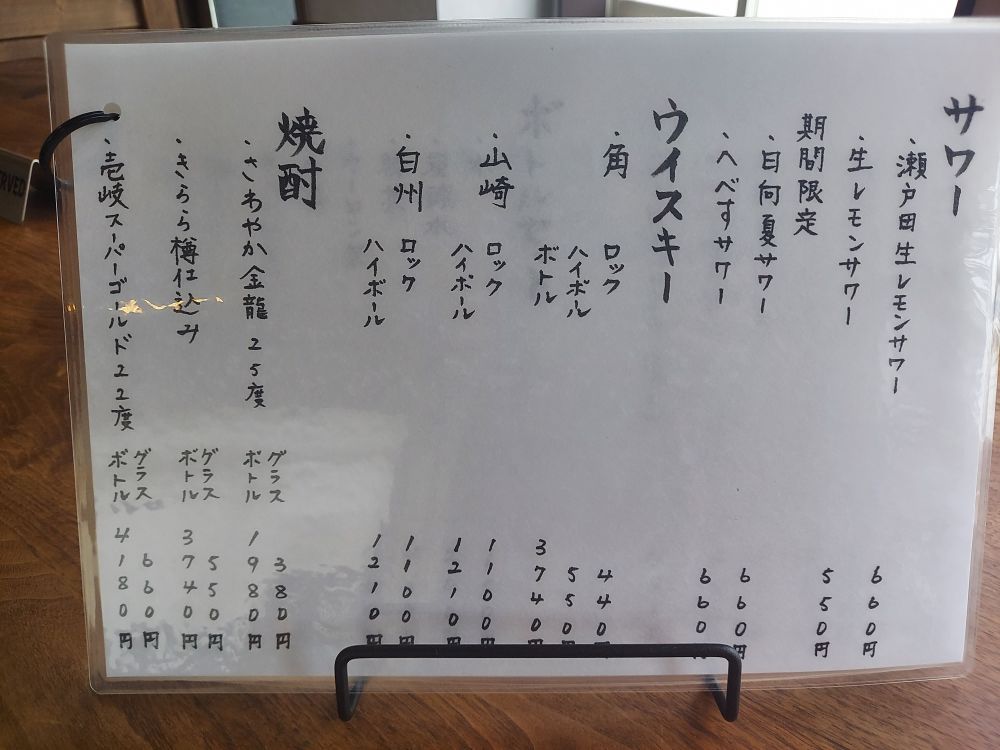 サワー
・瀬戸田生レモンサワー 660円
・生レモンサワー 550円
期間限定
・日向夏サワー 660円
・へべすサワー 660円
ウイスキー
・角 ロック 440円
ハイボール 550円
ボトル 3740円
・山崎 ロック 1100円
ハイボール 1210円
・白州 ロック 1100円
ハイボール 1210円
焼酎
・さわやか金龍 25度 グラス 380円
ボトル 1980円
・きらら樽仕込み グラス 550円
ボトル 3740円
・壱岐スーパーゴールド22度 グラス 660円
ボトル 4180円
RVED